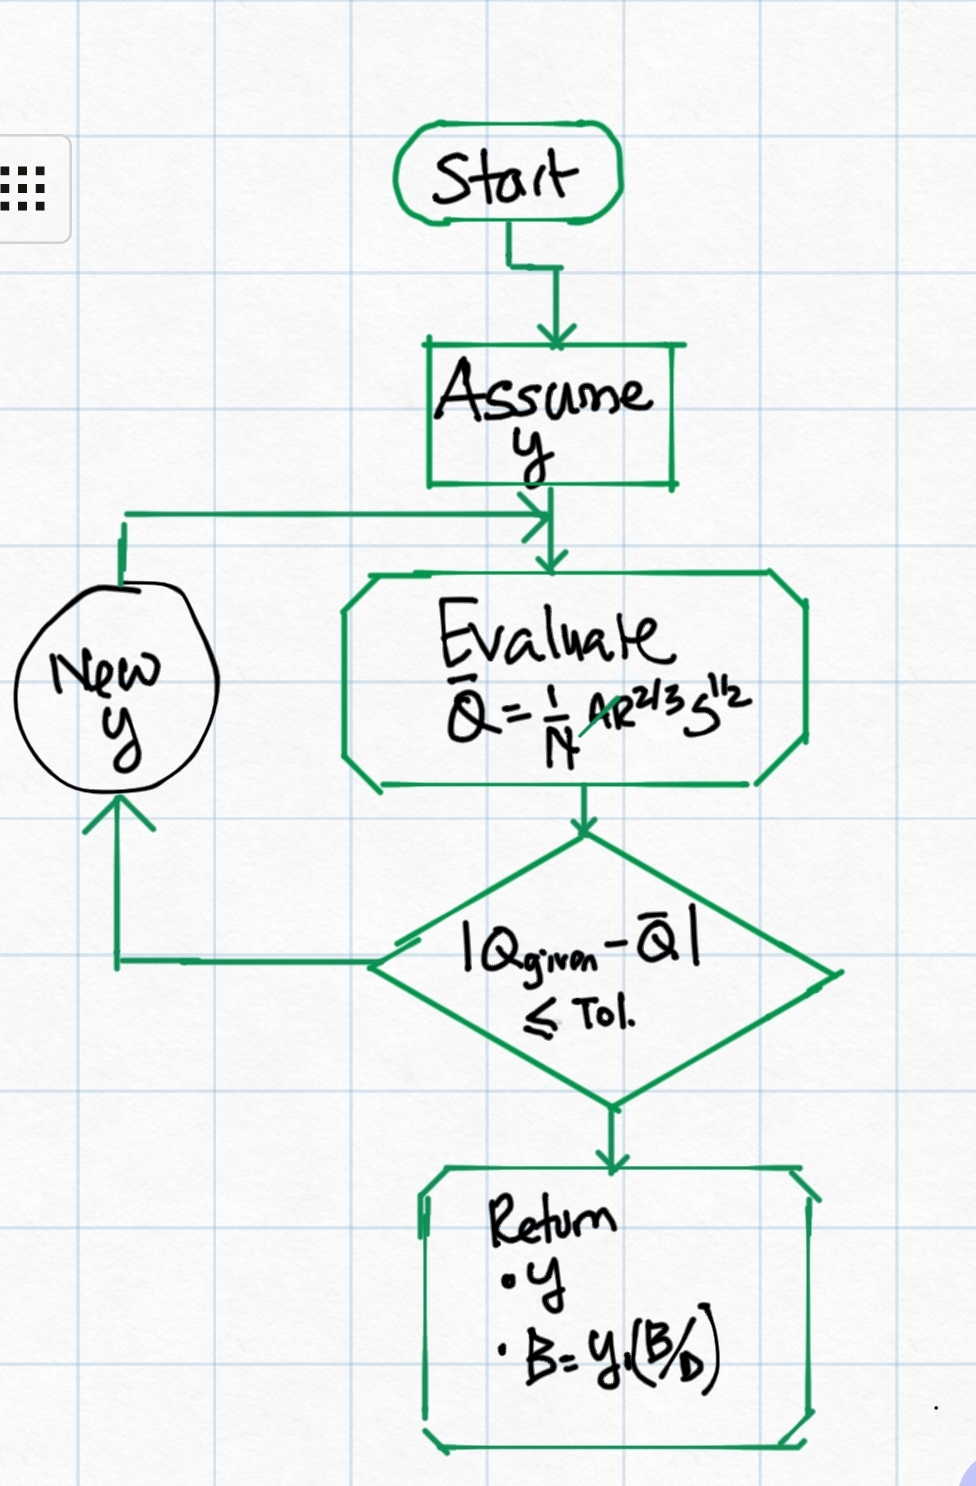 Start
Assume
y
Evaluate
Q̅ = 1/N AR^2/3 S^1/2
New
y
|Qgiven - Q̅|
≤ Tol.
Return
• y
• B = y.(B/D)